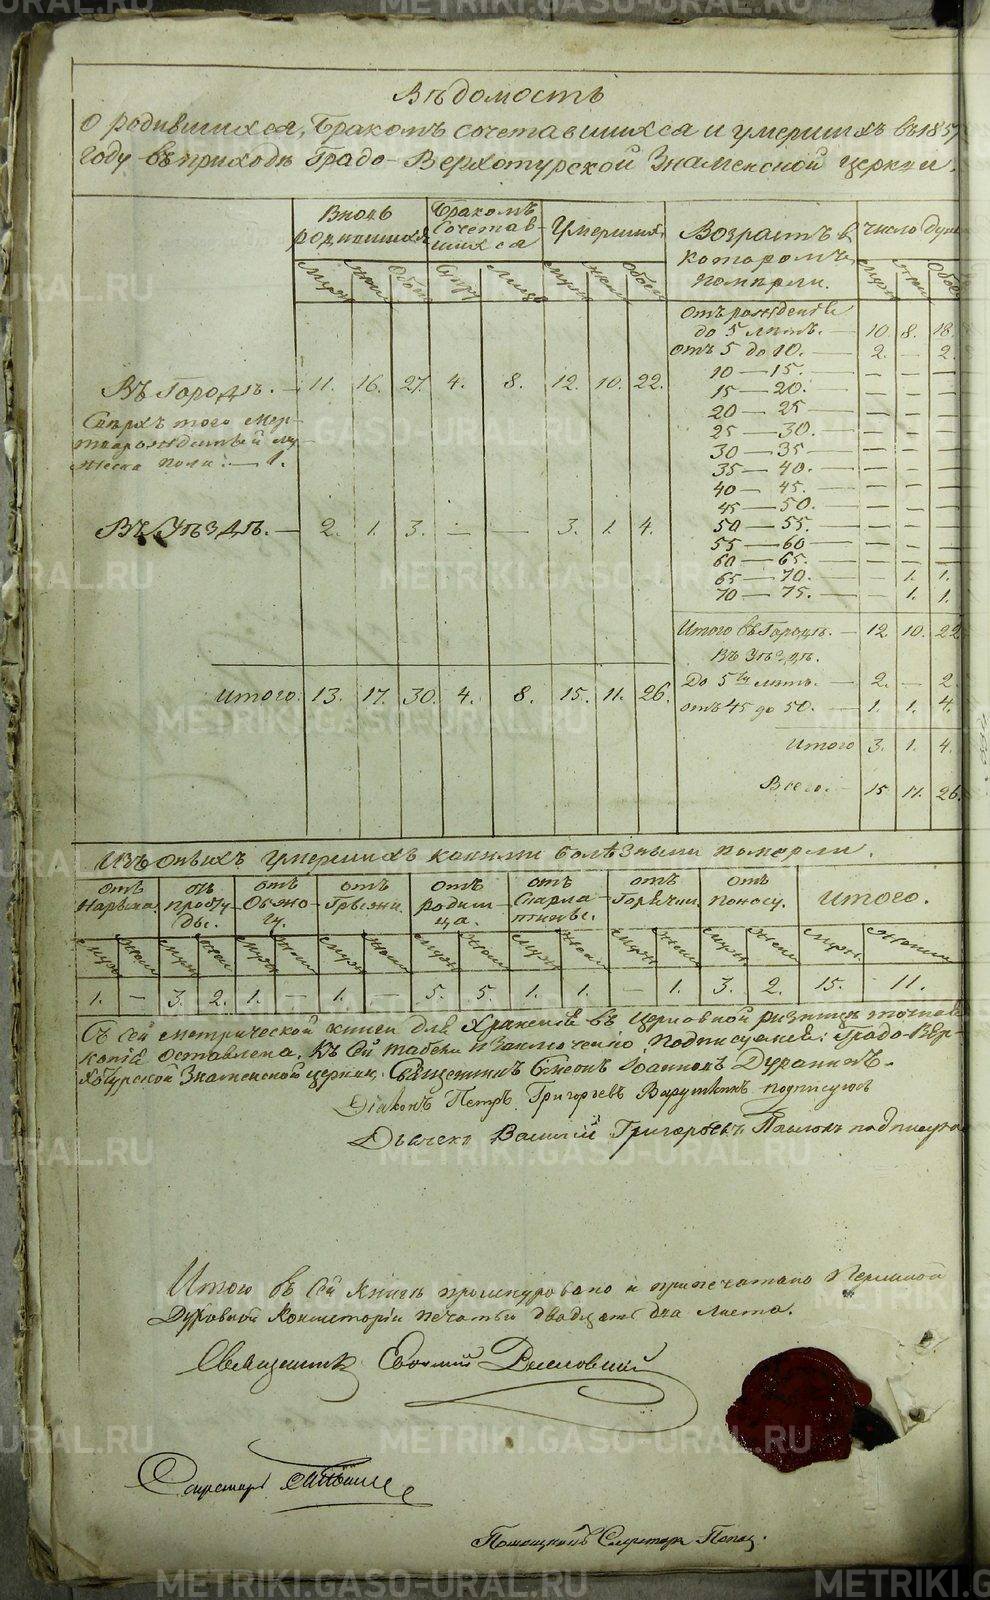 Вѣдомость
О родившихся, бракомъ сочетавшихся и умершихъ въ 1857
году въ приходѣ Градо-Верхотурской Знаменской церкви.
Вновь родившихся Бракомъ сочетавшихся Умершихъ Возрастъ въ которомъ померли. Число душъ
Муж. Жен. Обоег. Супр. Лицъ Муж. Жен. Обоег. Муж. Жен. Обоег.
отъ рожденія
до 5 лѣтъ. — 10 8. 18.
отъ 5 до 10. — 2. — 2.
Въ Городѣ. — 11. 16. 27. 4. 8. 12. 10. 22.
10 — 15. — — — —
15 — 20. — — —
Сверхъ того мер-
творожденный му-
жеска пола. — 1.
20 — 25 — — — —
25 — 30. — — —
30 — 35 — — — —
35 — 40. — — —
40 — 45. — — — —
45 — 50. — — —
Въ Уѣздѣ. — 2. 1. 3. — — 3. 1. 4.
50 — 55. — — — —
55 — 60 — — — —
60 — 65. — — — —
65 — 70. — — 1. 1.
70 — 75. — — 1. 1.
Итого въ Городѣ. — 12 10. 22
Въ Уѣздѣ.
До 5ти лѣтъ. — 2. — 2
Итого. 13. 17. 30. 4. 8. 15. 11. 26.
отъ 45 до 50. — 1. 1. 4.
Итого 3. 1. 4.
Всего. — 15 11. 26.
Изъ оныхъ умершихъ какими болѣзнями померли.
отъ Нарыва. отъ Простуды. отъ Обжогу. отъ Грыжи. отъ родимца. отъ Скарлатины. отъ Горячки. отъ поносу. Итого.
Муж. Жен. Муж. Жен. Муж. Жен. Муж. Жен. Муж. Жен. Муж. Жен. Муж. Жен. Муж. Жен. Муж. Женск.
1. — 3. 2. 1. — 1. — 5. 5. 1. 1. — 1. 3. 2. 15. 11.
Съ сей метрической книги для храненія въ церковной ризницѣ точная
копія оставлена. Къ сей табели и заключенію подписуемся: Градо-Вер-
хотурской Знаменской церкви, Священникъ Симеонъ Іоанновъ
Діаконъ Петръ Григорьевъ подписуюсь
Дьячекъ Василій Григорьевъ Поповъ подписуюсь
Итого въ сей книгѣ прошнуровано и припечатано Пермской
Духовной Консисторіи печатью двадцать два листа.
Священникъ Евфимій
Секретарь
Помощникъ Секретаря Попов.
METRIKI.GASO-URAL.RU